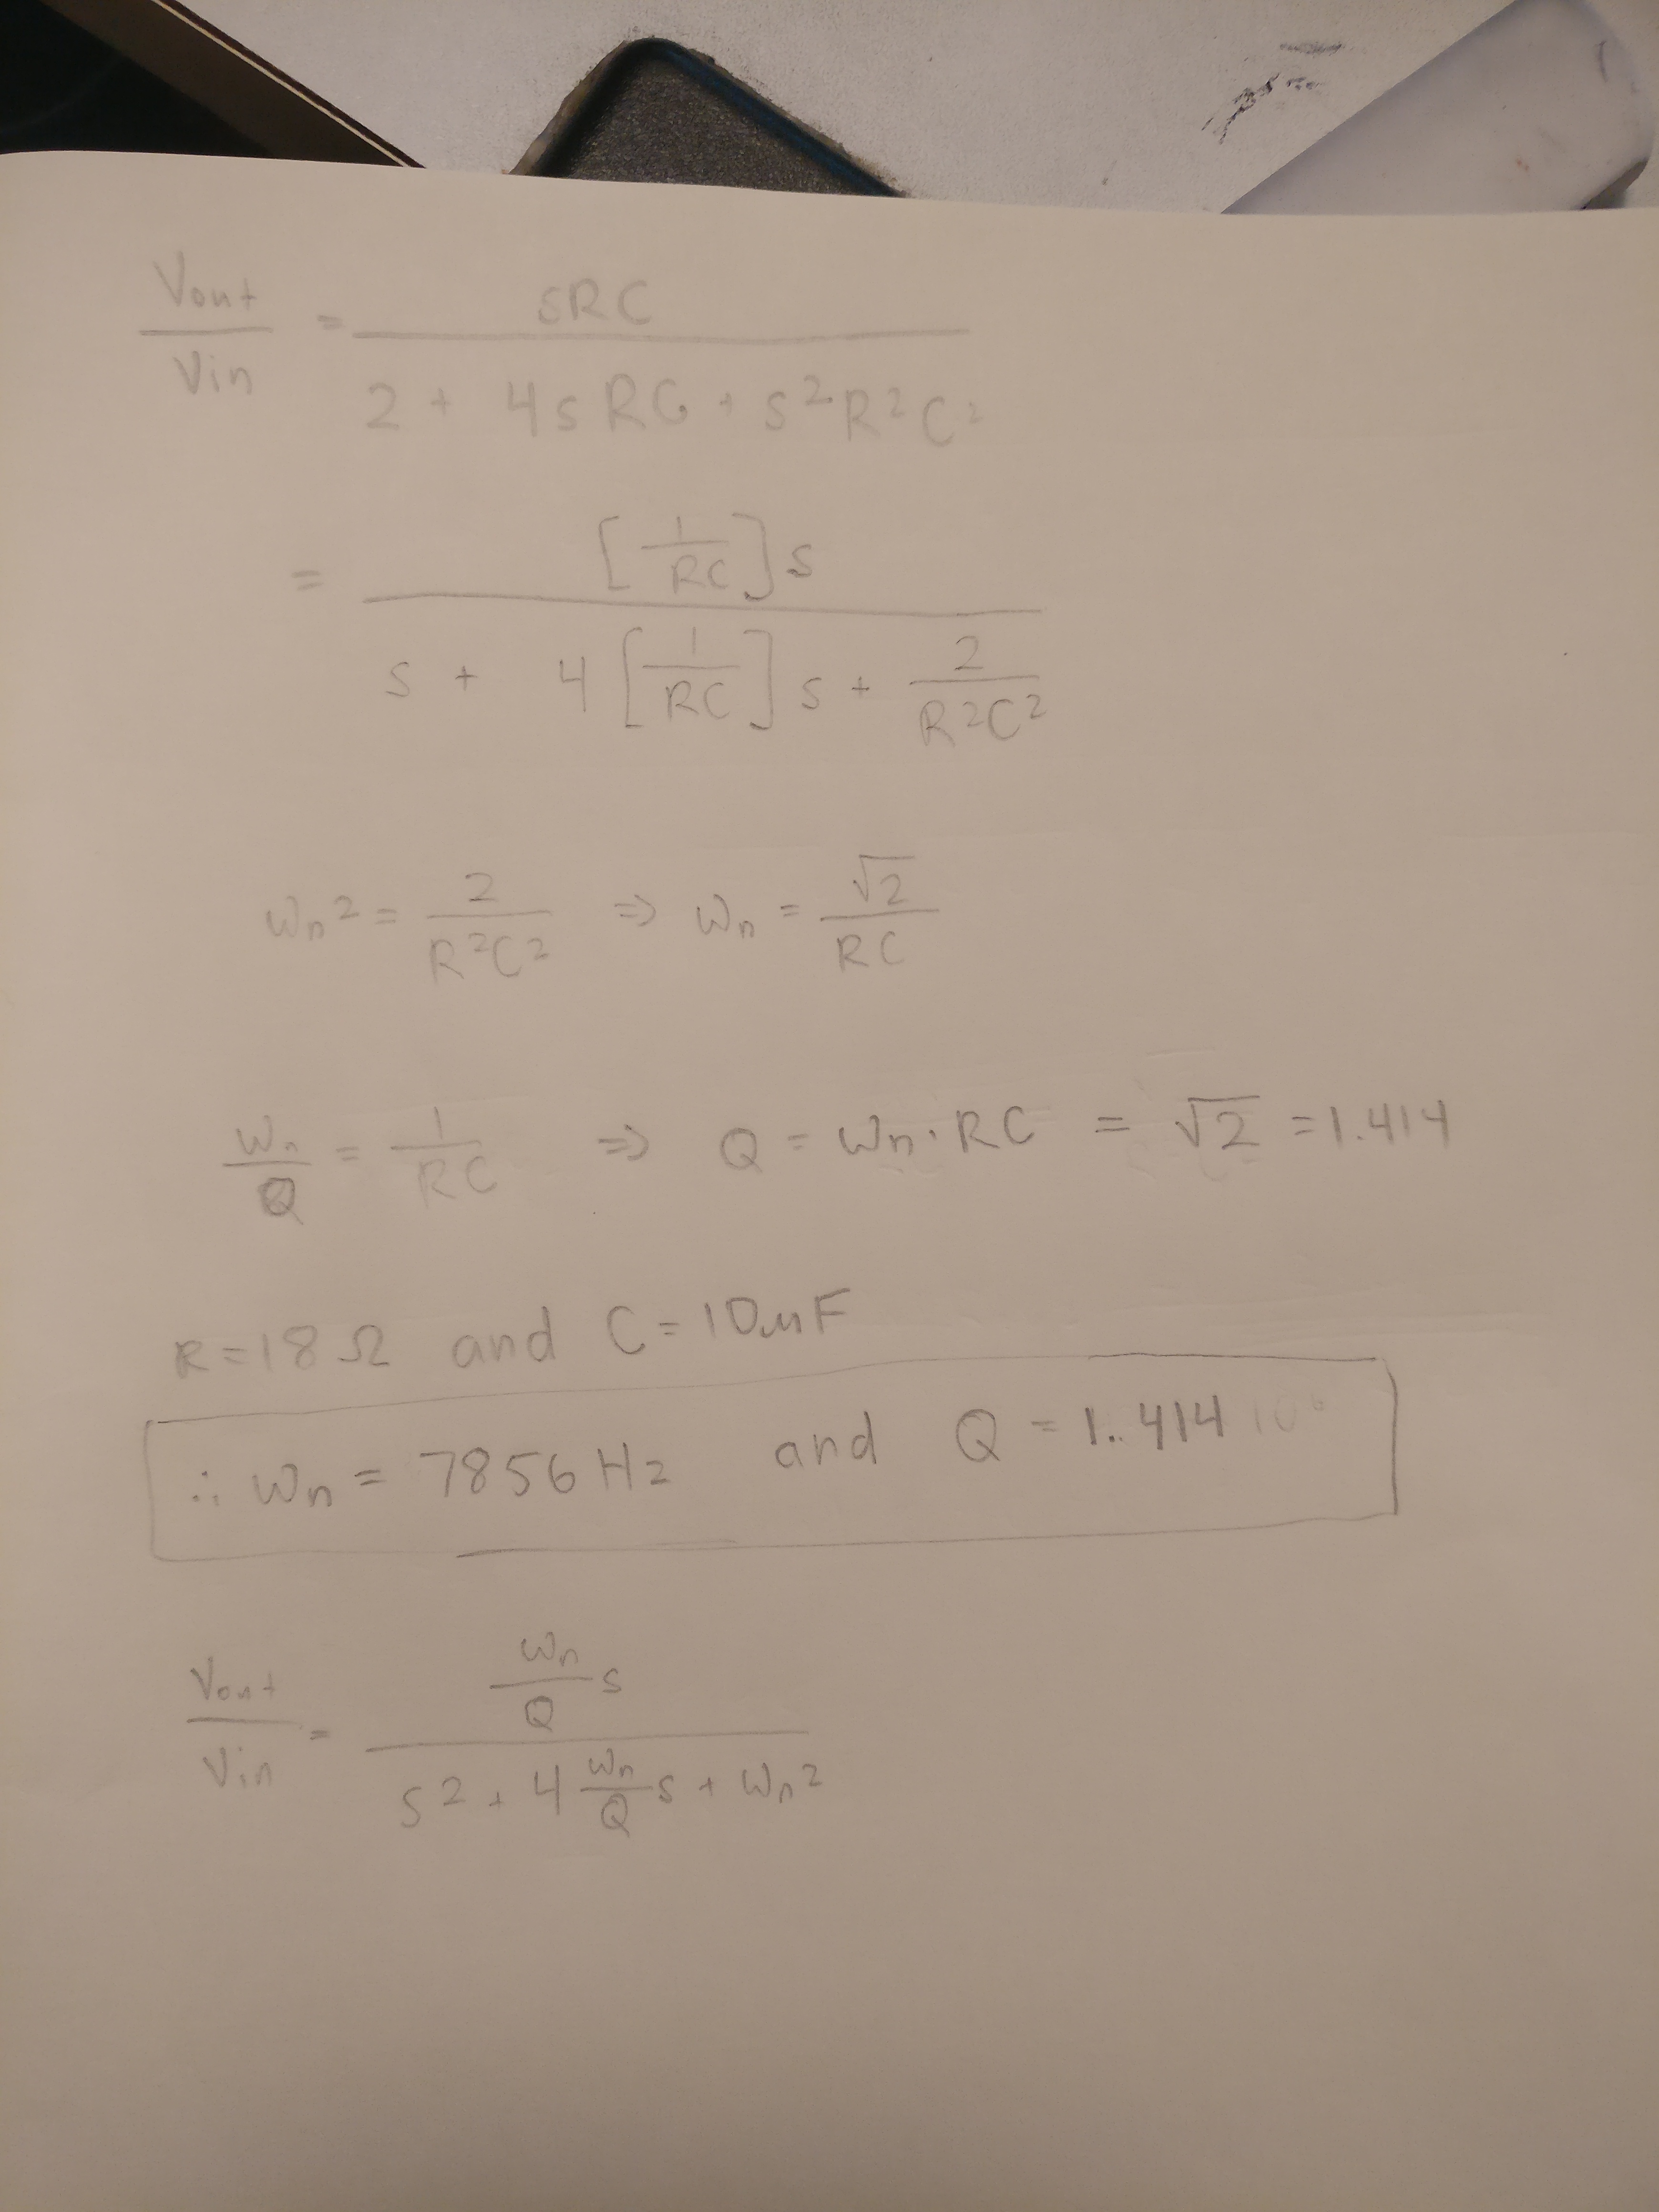 Vout/Vin = sRC / (2 + 4sRC + s²R²C²)
= [1/RC]s / (s + 4[1/RC]s + 2/R²C²)
ωn² = 2/R²C² ⇒ ωn = √2/RC
ωn/Q = 1/RC ⇒ Q = ωn·RC = √2 = 1.414
R=18Ω and C=10μF
∴ ωn = 7856Hz and Q = 1.414
Vout/Vin = (ωn/Q)s / (s² + 4(ωn/Q)s + ωn²)